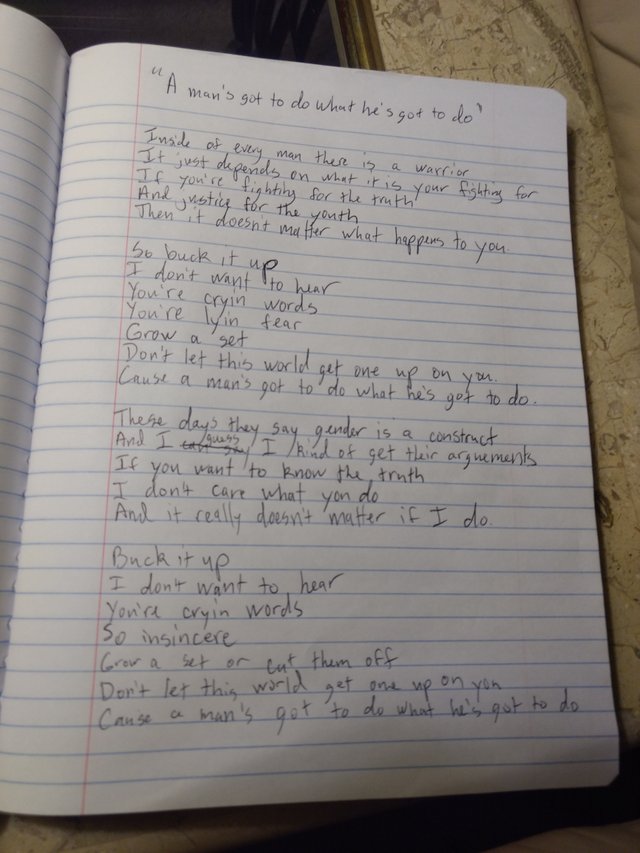 "A man's got to do what he's got to do"
Inside of every man there is a warrior
It just depends on what it is your fighting for
If you're fighting for the truth
And justice for the youth
Then it doesn't matter what happens to you
So buck it up
I don't want to hear
You're cryin words
You're lyin fear
Grow a set
Don't let this world get one up on you.
Cause a man's got to do what he's got to do.
These days they say gender is a construct
And I guess I kind of get their arguements
If you want to know the truth
I don't care what you do
And it really doesn't matter if I do.
Buck it up
I don't want to hear
You're cryin words
So insincere
Grow a set or cut them off
Don't let this world get one up on you
Cause a man's got to do what he's got to do